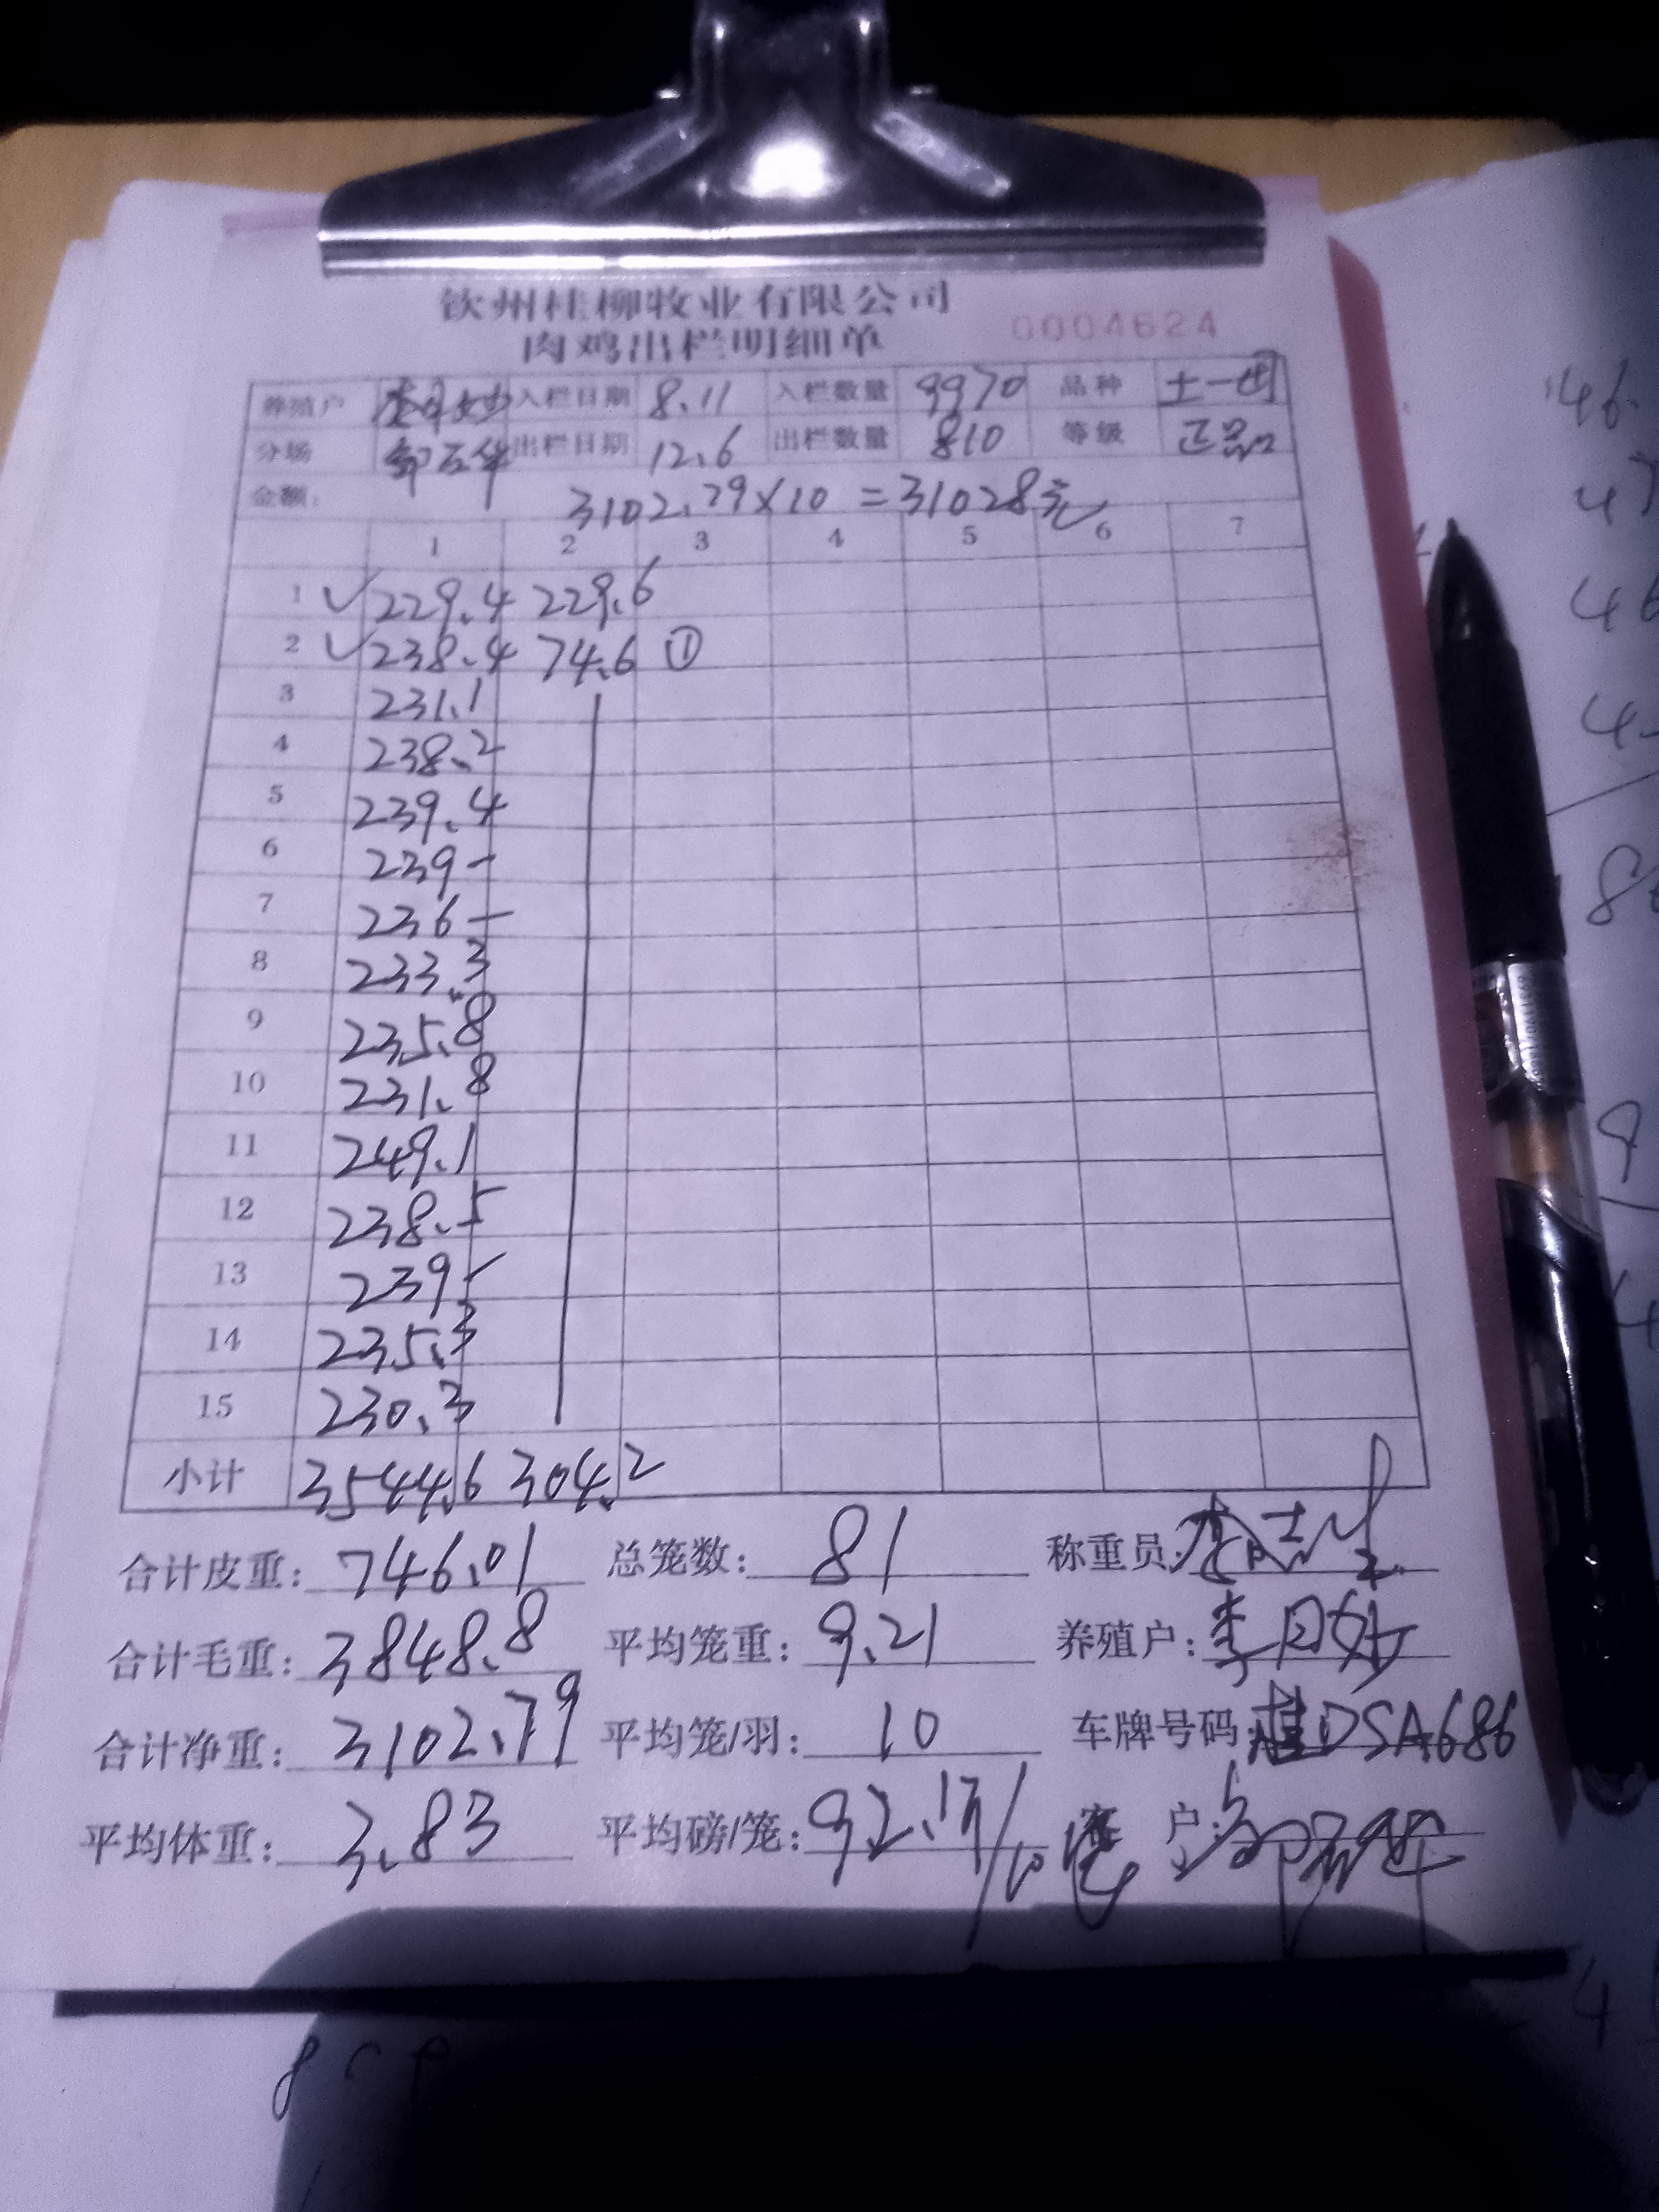 钦州桂柳牧业有限公司
肉鸡出栏明细单 0004624
养殖户 李月妙 入栏日期 8.11 入栏数量 9970 品种 土一
分场 邹五华 出栏日期 12.6 出栏数量 810 等级 正品
金额: 3102.79×10=31028元
1 2 3 4 5 6 7
1 ✓ 229.4 229.6
2 ✓ 238.4 74.6 ①
3 231.1
4 238.2
5 239.4
6 239-
7 236-
8 233.3
9 235.8
10 231.8
11 249.1
12 238.5
13 239-
14 235.3
15 230.3
小计 3544.6 304.2
合计皮重: 746.01 总笼数: 81 称重员:
合计毛重: 3848.8 平均笼重: 9.21 养殖户: 李月妙
合计净重: 3102.79 平均笼/羽: 10 车牌号码: 桂DSA686
平均体重: 3.83 平均磅/笼: 92.17/ 客户: